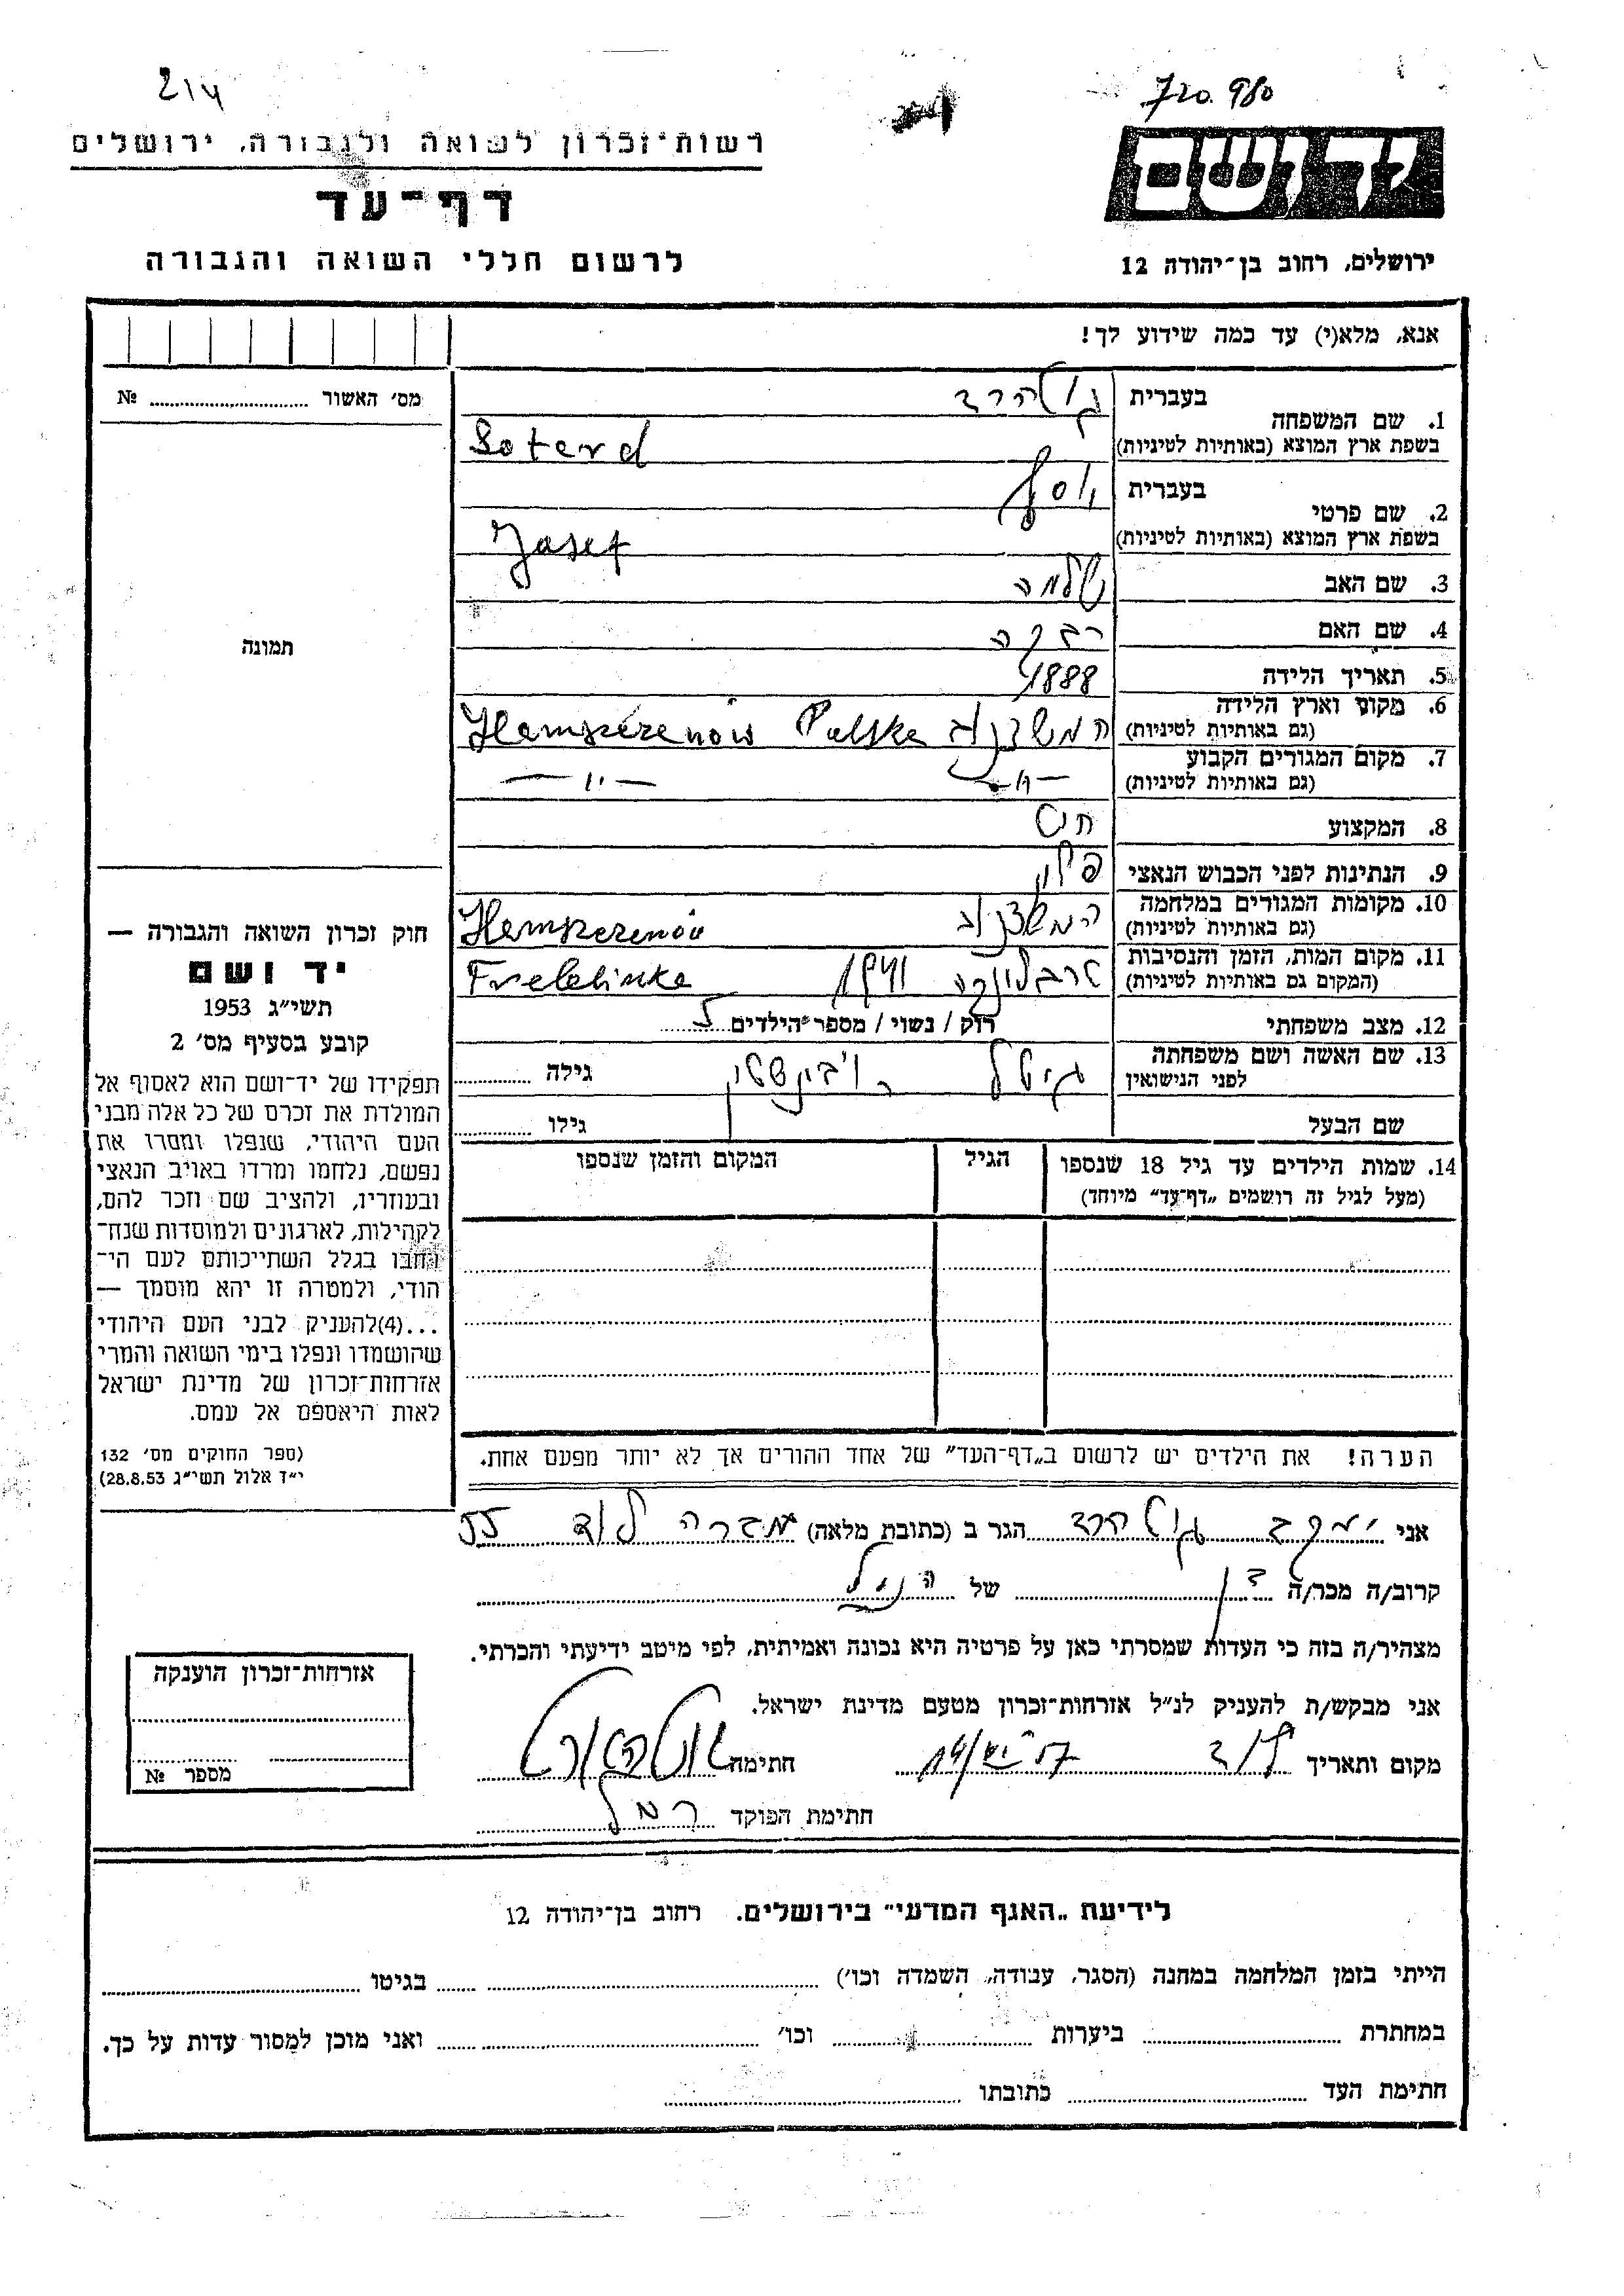 214
720.980
רשות־זכרון לשואה ולגבורה, ירושלים
יד ושם
דף־עד
לרשום חללי השואה והגבורה
ירושלים, רחוב בן־יהודה 12
אנא, מלא(י) עד כמה שידוע לך!
מס׳ האשור № 
1. שם המשפחה בעברית
בשפת ארץ המוצא (באותיות לטיניות)
2. שם פרטי בעברית יוסף
בשפת ארץ המוצא (באותיות לטיניות) Josef
3. שם האב שלמה
4. שם האם רבקה
5. תאריך הלידה 1888
6. מקום וארץ הלידה
(גם באותיות לטיניות) Polska
7. מקום המגורים הקבוע
(גם באותיות לטיניות) — 〃 — — 〃 —
8. המקצוע
9. הנתינות לפני הכבוש הנאצי פולין
10. מקומות המגורים במלחמה
(גם באותיות לטיניות)
11. מקום המות, הזמן והנסיבות
(המקום גם באותיות לטיניות) טרבלינקה 1941
12. מצב משפחתי רוק / נשוי / מספר הילדים
13. שם האשה ושם משפחתה
לפני הנישואין גיטל רובינשטיין גילה
שם הבעל גילו
14. שמות הילדים עד גיל 18 שנספו הגיל המקום והזמן שנספו
(מעל לגיל זה רושמים „דף־עד״ מיוחד)
הערה! את הילדים יש לרשום ב„דף־העד״ של אחד ההורים אך לא יותר מפעם אחת.
תמונה
חוק זכרון השואה והגבורה —
יד ושם
תשי״ג 1953
קובע בסעיף מס׳ 2
תפקידו של יד־ושם הוא לאסוף אל
המולדת את זכרם של כל אלה מבני
העם היהודי, שנפלו ומסרו את
נפשם, נלחמו ומרדו באויב הנאצי
ובעוזריו, ולהציב שם וזכר להם,
לקהילות, לארגונים ולמוסדות שנח־
רבו בגלל השתייכותם לעם הי־
הודי, ולמטרה זו יהא מוסמך —
...(4)להעניק לבני העם היהודי
שהושמדו ונפלו בימי השואה והמרי
אזרחות־זכרון של מדינת ישראל
לאות היאספם אל עמם.
(ספר החוקים מס׳ 132
י״ד אלול תשי״ג 28.8.53)
אני יעקב הגר ב (כתובת מלאה) לוד 55
קרוב/ה מכר/ה בן של הנ״ל
מצהיר/ה בזה כי העדות שמסרתי כאן על פרטיה היא נכונה ואמיתית, לפי מיטב ידיעתי והכרתי.
אני מבקש/ת להעניק לנ״ל אזרחות־זכרון מטעם מדינת ישראל.
מקום ותאריך לוד חתימה
חתימת הפוקד
אזרחות־זכרון הוענקה
מספר №
לידיעת „האגף המדעי״ בירושלים. רחוב בן־יהודה 12
הייתי בזמן המלחמה במחנה (הסגר, עבודה, השמדה וכו׳) בגיטו
במחתרת ביערות וכו׳ ואני מוכן למסור עדות על כך.
חתימת העד כתובתו